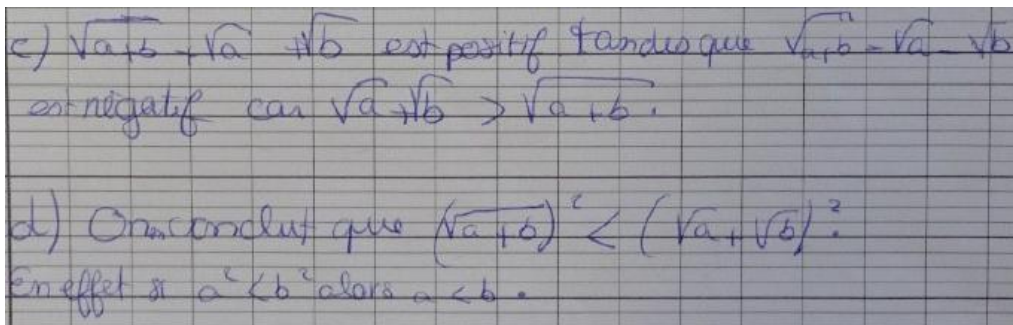 c) √(a+b) + √a + √b est positif tandis que √(a+b) - √a - √b
est négatif car √a + √b > √(a+b).
d) On conclut que (√(a+b))² < (√a + √b)².
En effet si a² < b² alors a < b.